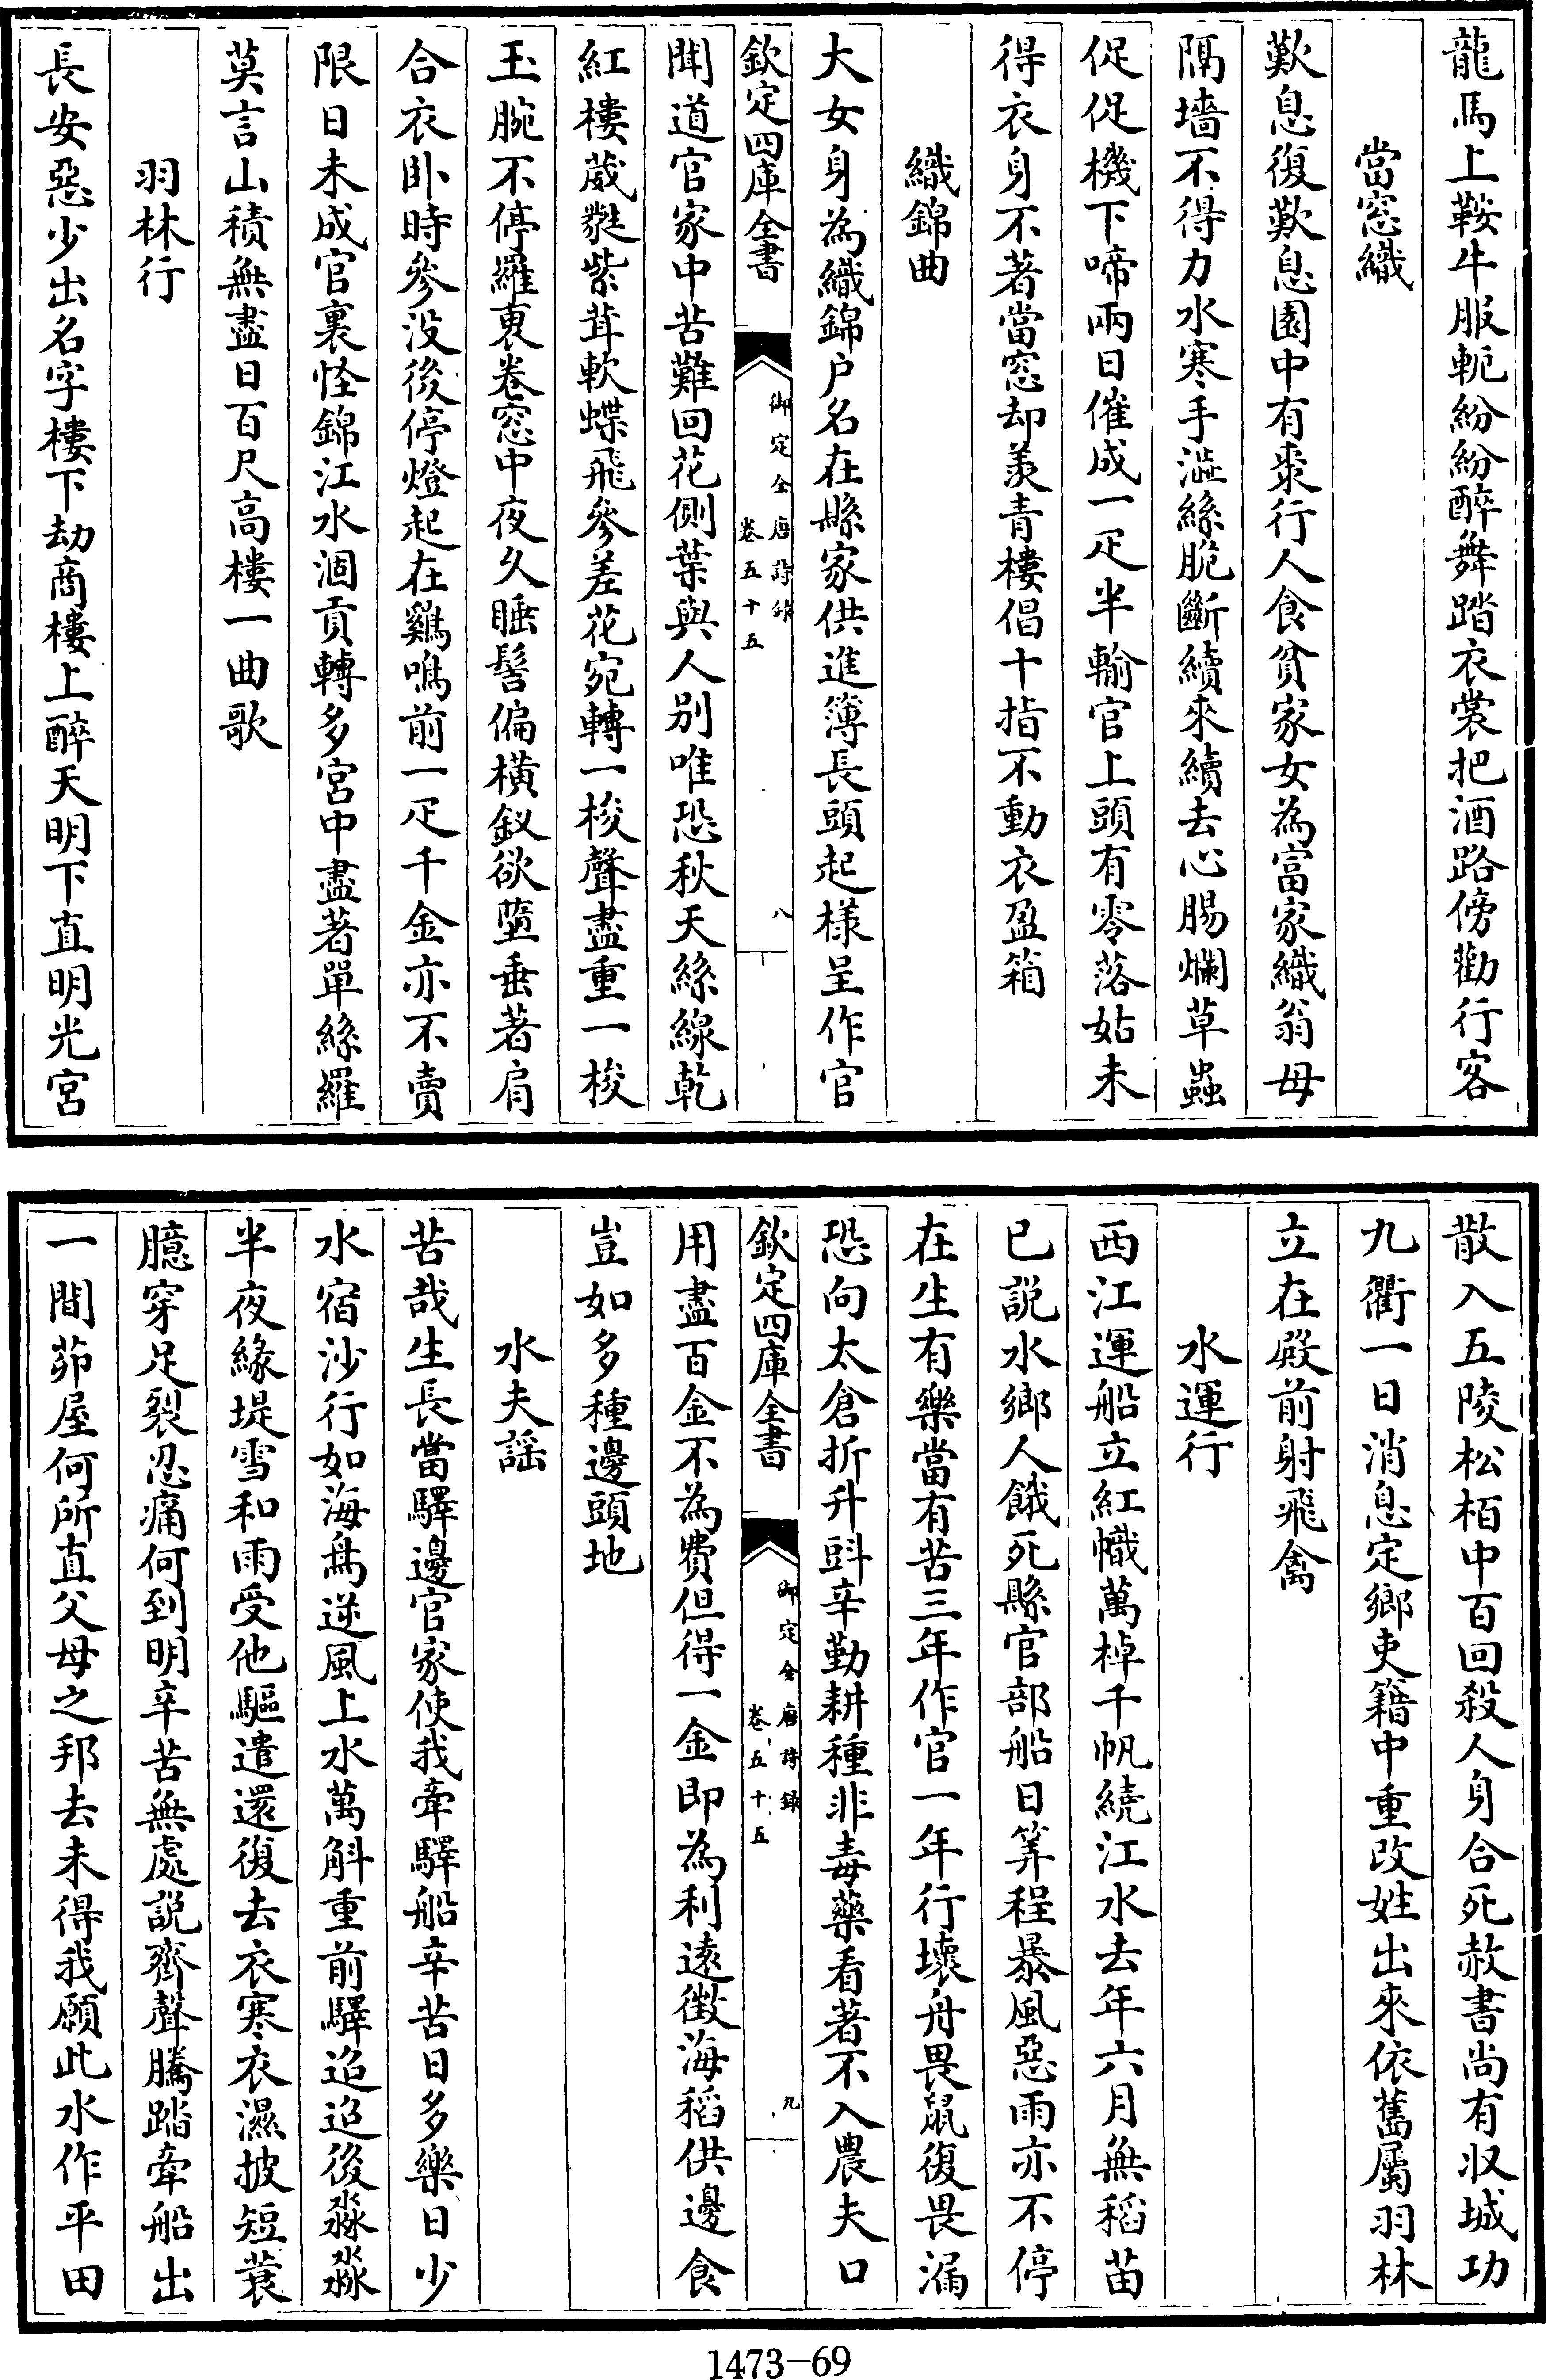 龍馬上鞍牛服軛紛紛醉舞踏衣裳把酒路傍勸行客
當窓織
歎息復歎息園中有棗行人食貧家女為富家織翁母
隔墻不得力水寒手澁絲脆斷續來續去心腸爛草蟲
促促機下啼兩日催成一疋半輸官上頭有零落姑未
得衣身不著當窓却羨青樓倡十指不動衣盈箱
織錦曲
大女身為織錦户名在縣家供進簿長頭起様呈作官
欽定四庫全書
御定全唐詩錄
卷五十五
八
聞道官家中苦難回花側葉與人別唯恐秋天絲線乾
紅樓葳蕤紫茸軟蝶飛參差花宛轉一梭聲盡重一梭
玉腕不停羅袖卷窓中夜久睡髻偏橫釵欲墮垂著肩
合衣卧時參没後停燈起在鷄鳴前一疋千金亦不賣
限日未成官裏怪錦江水涸貢轉多宮中盡著單絲羅
莫言山積無盡日百尺高樓一曲歌
羽林行
長安惡少出名字樓下劫商樓上醉天明下直明光宮
散入五陵松栢中百回殺人身合死赦書尚有収城功
九衢一日消息定鄉吏籍中重改姓出來依舊屬羽林
立在殿前射飛禽
水運行
西江運船立紅幟萬棹千帆繞江水去年六月無稻苗
已說水鄉人餓死縣官部船日筭程暴風惡雨亦不停
在生有樂當有苦三年作官一年行壞舟畏鼠復畏漏
恐向太倉折升㪷辛勤耕種非毒藥看著不入農夫口
欽定四庫全書
御定全唐詩錄
卷五十五
九
用盡百金不為費但得一金即為利遠徵海稻供邊食
豈如多種邊頭地
水夫謡
苦哉生長當驛邊官家使我牽驛船辛苦日多樂日少
水宿沙行如海鳥逆風上水萬斛重前驛迢迢後淼淼
半夜緣堤雪和雨受他驅遣還復去衣寒衣濕披短蓑
臆穿足裂忍痛何到明辛苦無處說齊聲騰踏牽船出
一間茆屋何所直父母之邦去未得我願此水作平田
1473-69